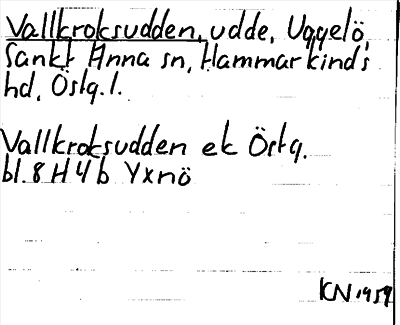 Vallkroksudden, udde, Uggelö,
Sankt Anna sn, Hammarkinds
hd, Östg.l.
Vallkroksudden ek Östg.
bl. 8 H 4 b Yxnö
KN 1959